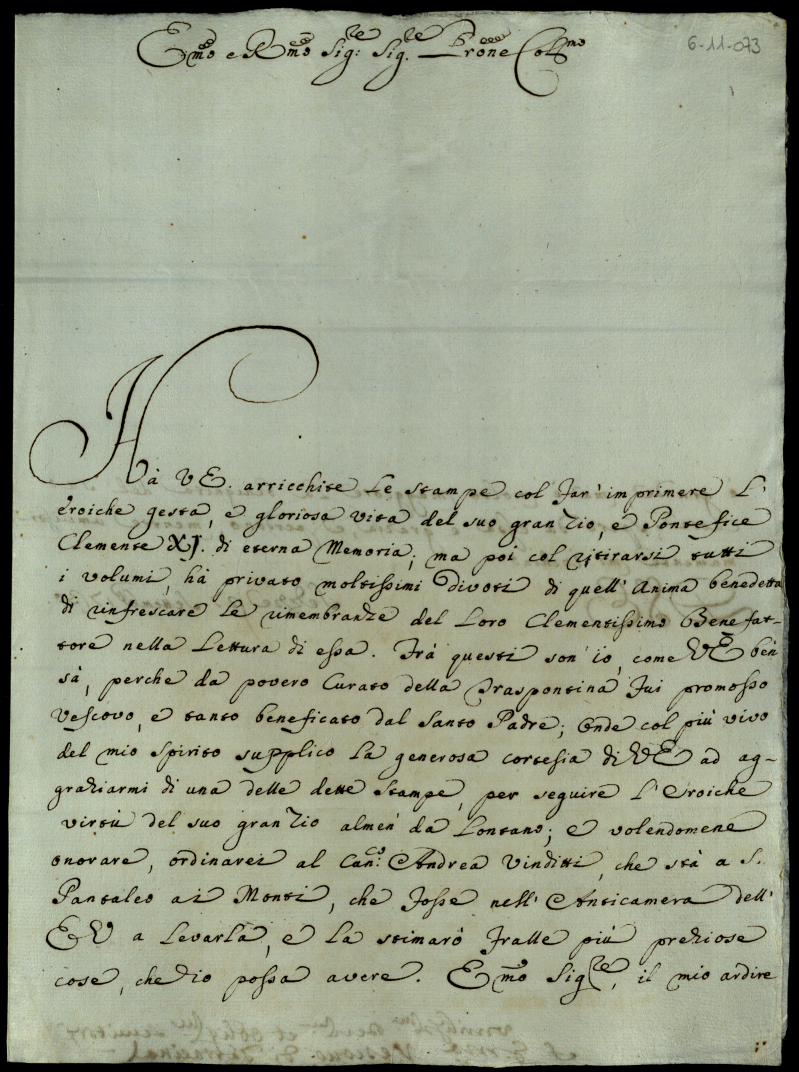 Emo e Rmo Sig:re Sig.re Prone Colmo
6-11-073
Hà VE. arricchite le stampe col far' imprimere l'
eroiche gesta, e gloriosa vita del suo gran Zio, e Pontefice
Clemente XI. di eterna Memoria; ma poi col ritirarsi tutti
i volumi, hà privato moltissimi Divoti di quell' Anima benedetta
di rinfrescare le rimembranze del loro Clementissimo Benefat-
tore nella Lettura di essa. Frà questi son' io, come VE ben
sà, perche da povero Curato della Traspontina fui promosso
Vescovo, e tanto beneficato dal Santo Padre; Onde col più vivo
del mio spirito supplico la generosa cortesia di VE ad ag-
graziarmi di una delle dette stampe, per seguire l'Eroiche
virtù del suo gran Zio almen' da Lontano; e volendomene
onorare, ordinarei al Can:co Andrea Vinditti, che stà a S.
Pantaleo ai Monti, che fosse nell' Anticamera dell'
E V a levarla, e la stimarò fralle più preziose
cose, che io possa avere. Emo Sigre, il mio ardire